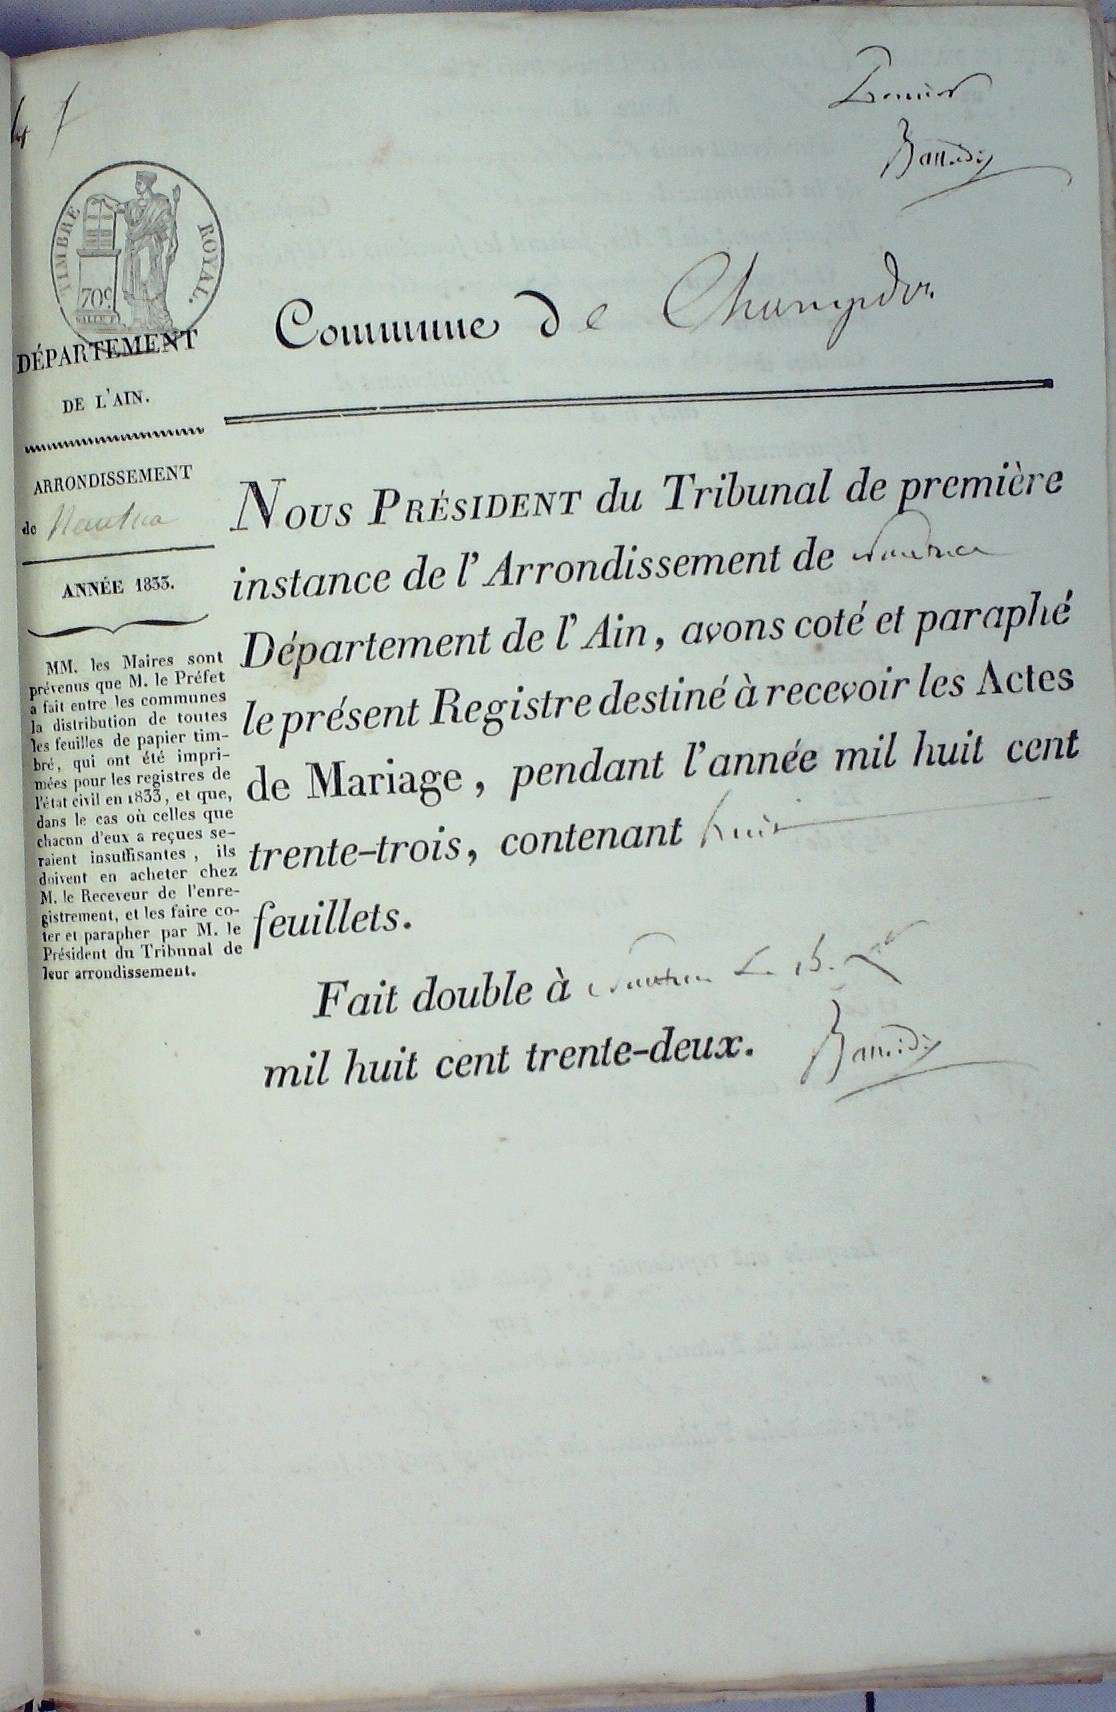 Premier
TIMBRE ROYAL.
70c
DÉPARTEMENT
DE L'AIN.
ARRONDISSEMENT
de Nantua
ANNÉE 1833.
MM. les Maires sont
prévenus que M. le Préfet
a fait entre les communes
la distribution de toutes
les feuilles de papier tim-
bré, qui ont été impri-
mées pour les registres de
l'état civil en 1833, et que,
dans le cas où celles que
chacun d'eux a reçues se-
raient insuffisantes, ils
doivent en acheter chez
M. le Receveur de l'enre-
gistrement, et les faire co-
ter et parapher par M. le
Président du Tribunal de
leur arrondissement.
Commune de Champdor
NOUS PRÉSIDENT du Tribunal de première
instance de l'Arrondissement de Nantua
Département de l'Ain, avons coté et paraphé
le présent Registre destiné à recevoir les Actes
de Mariage, pendant l'année mil huit cent
trente-trois, contenant huit
feuillets.
Fait double à Nantua Le 15.
mil huit cent trente-deux.